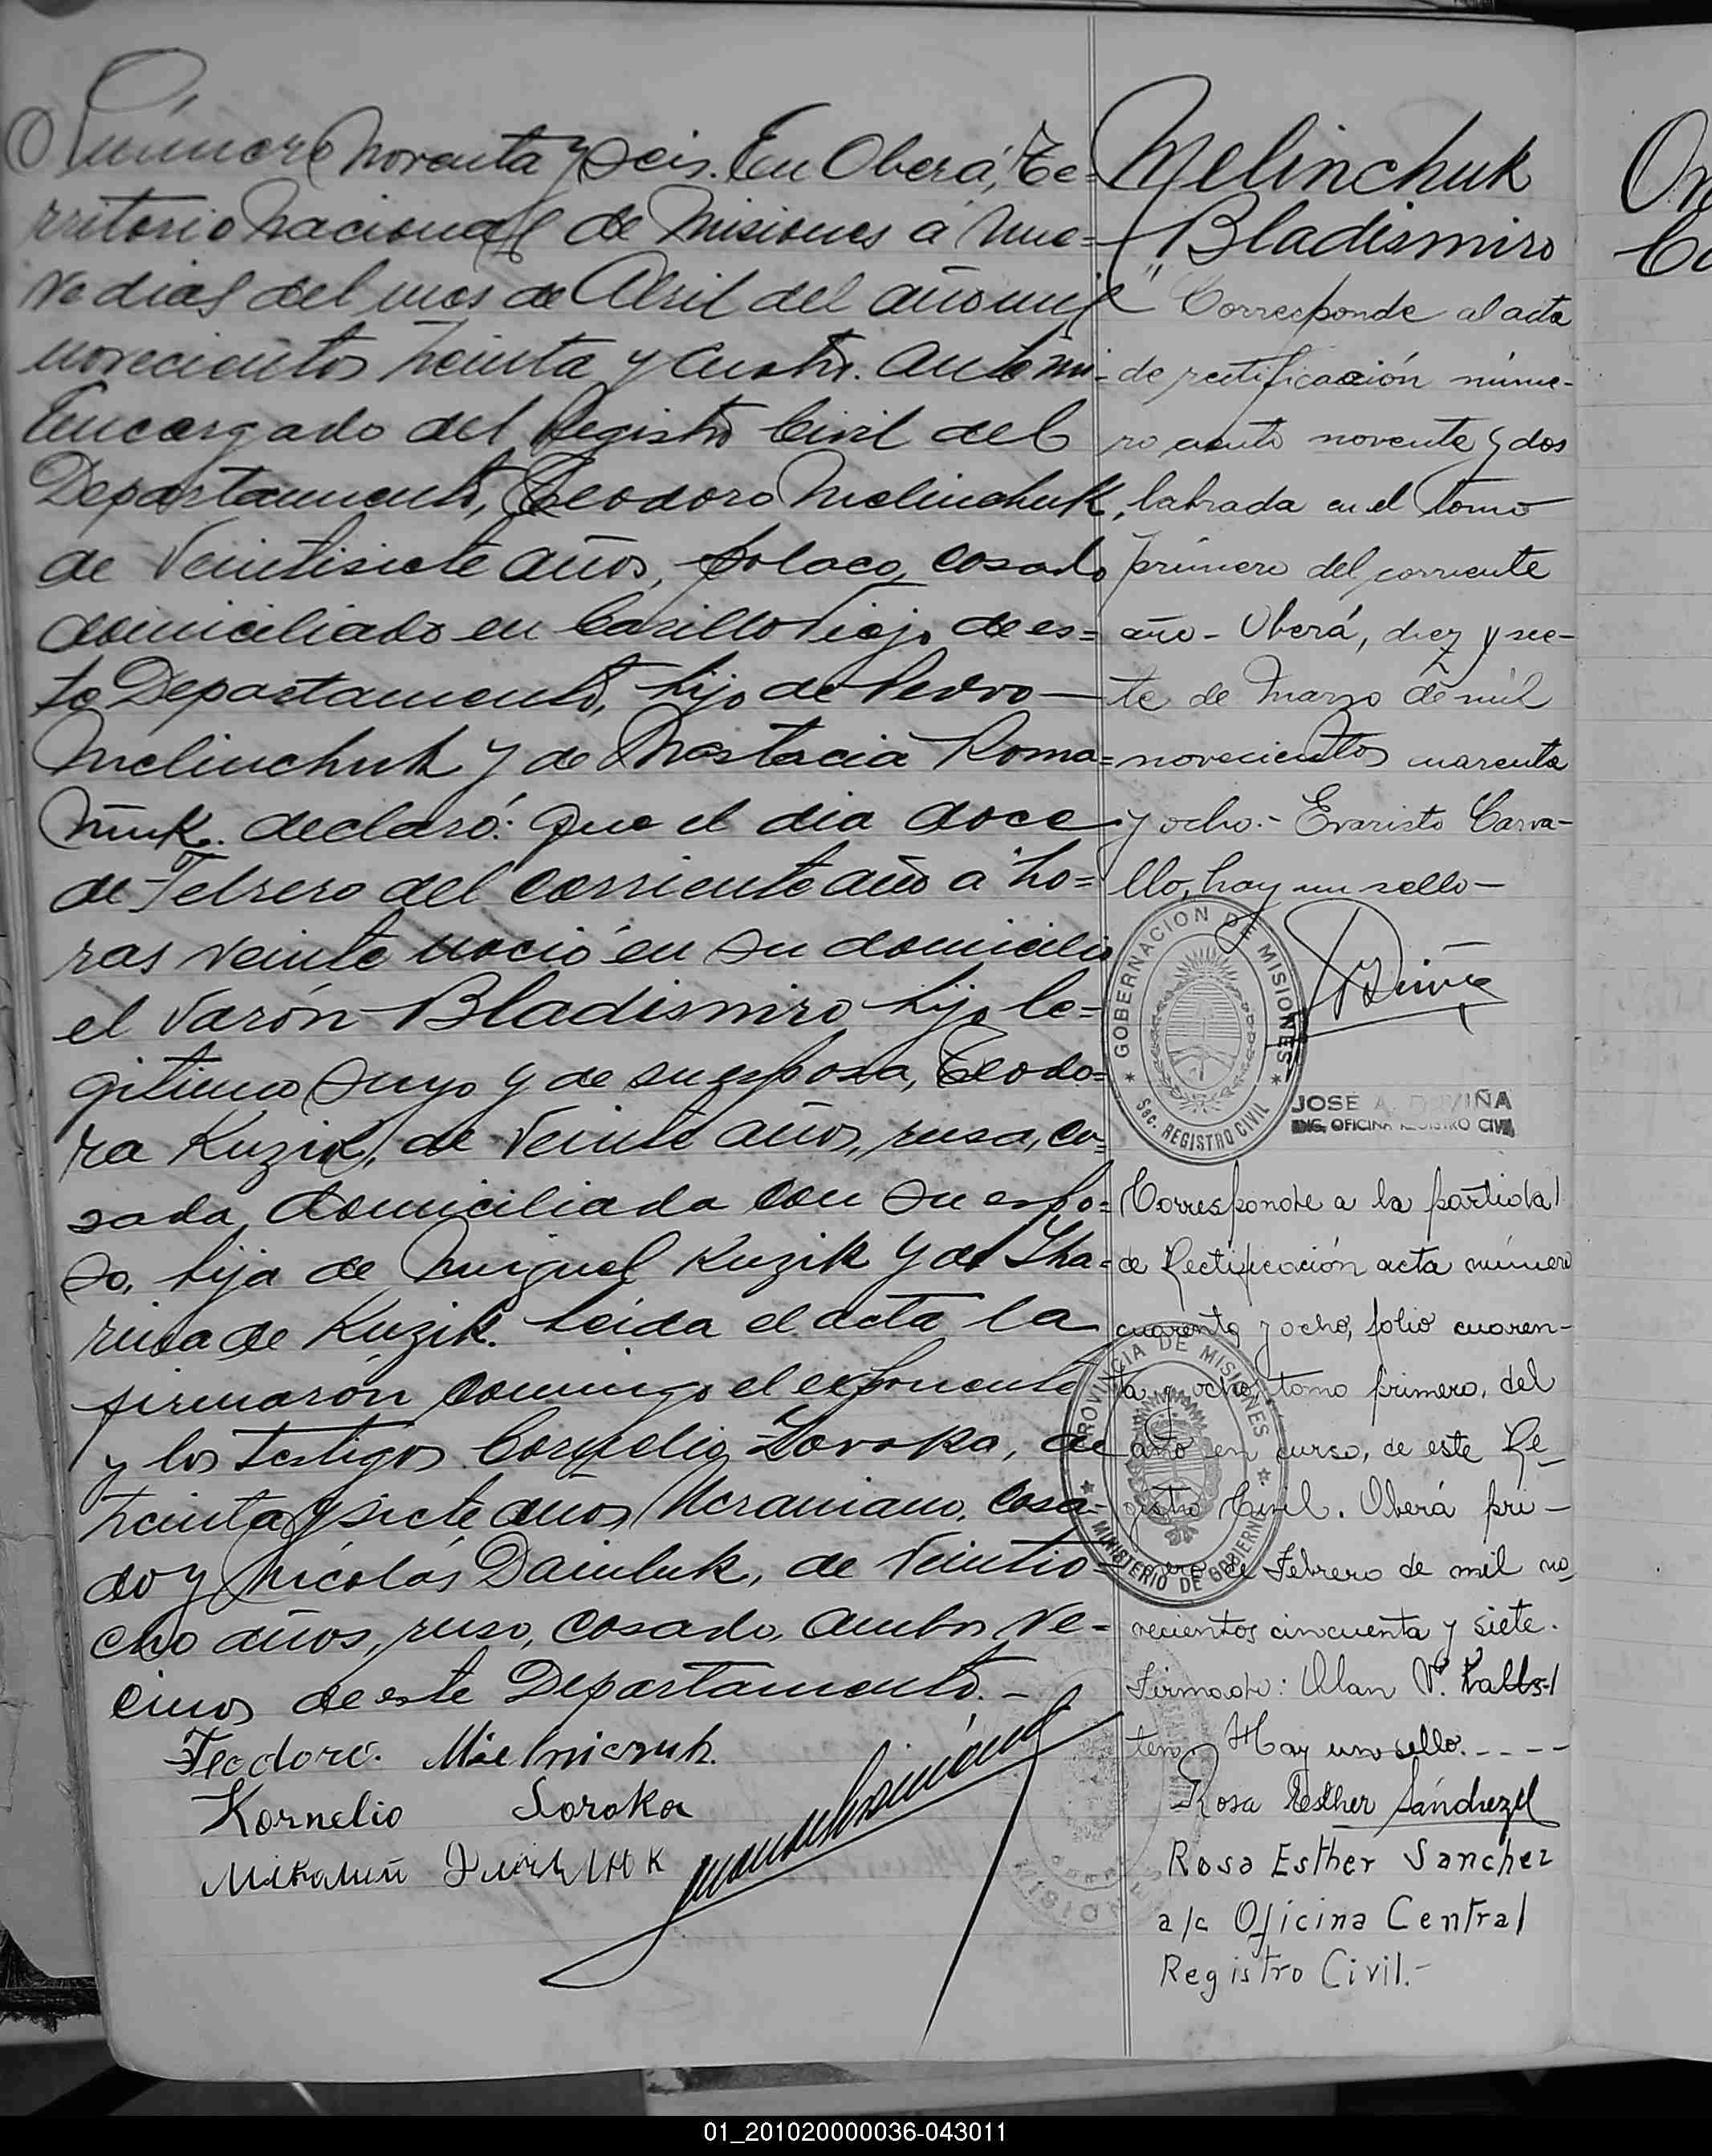 Número Noventa y Seis. En Oberá, Te=
rritorio Nacional de Misiones a nue=
ve dias del mes de Abril del año mil
novecientos treinta y cuatro. Ante mi
Encargado del Registro Civil del
Departamento, Teodoro Melinchuk,
de veintisiete años, polaco, casado
domiciliado en Casillo Viejo de es=
te Departamento, hijo de Pedro —
Melinchuk y de Nastacia Roma=
niuk. declaró: Que el dia doce
de Febrero del corriente año a ho=
ras veinte nació en su domicilio
el varón Bladismiro hijo le=
gitimo suyo y de su esposa, Teodo=
ra Kuzik, de veinte años, rusa, ca=
sada, domiciliada con su espo=
so, hija de Miguel Kuzik y de Iha=
rina de Kuzik. Leida el acta la
firmaron conmigo el exponente
y los testigos Cornelio Zoroka, de
treinta y siete años, Ucraniano, casa=
do y Nicolás Dainluk, de veintio=
cho años, ruso, casado, ambos ve=
cinos de este Departamento. –
Teodoro. Mielniczuk.
Kornelio Soroka
Melinchuk
Bladismiro
" Corresponde al acta
de rectificación núme-
ro ciento noventa y dos
labrada en el tomo
primero del corriente
año - Oberá, diez y sie-
te de Marzo de mil
novecientos cuarenta
y ocho.- Evaristo Carva-
llo, hay un sello —
GOBERNACION DE MISIONES
Sec. REGISTRO CIVIL
JOSE A. VIÑA
OFICINA REGISTRO CIVIL
Corresponde a la partida
de Rectificación acta número
cuarenta y ocho, folio cuaren-
ta y ocho, tomo primero, del
año en curso, de este Re-
gistro Civil. Oberá pri-
mero de Febrero de mil no-
vecientos cincuenta y siete.
Firmado: Olan V.
ten. Hay un sello.----
PROVINCIA DE MISIONES
MINISTERIO DE GOBIERNO
Rosa Esther Sánchez
Rosa Esther Sanchez
a/c Oficina Central
Registro Civil.-
01_201020000036-043011